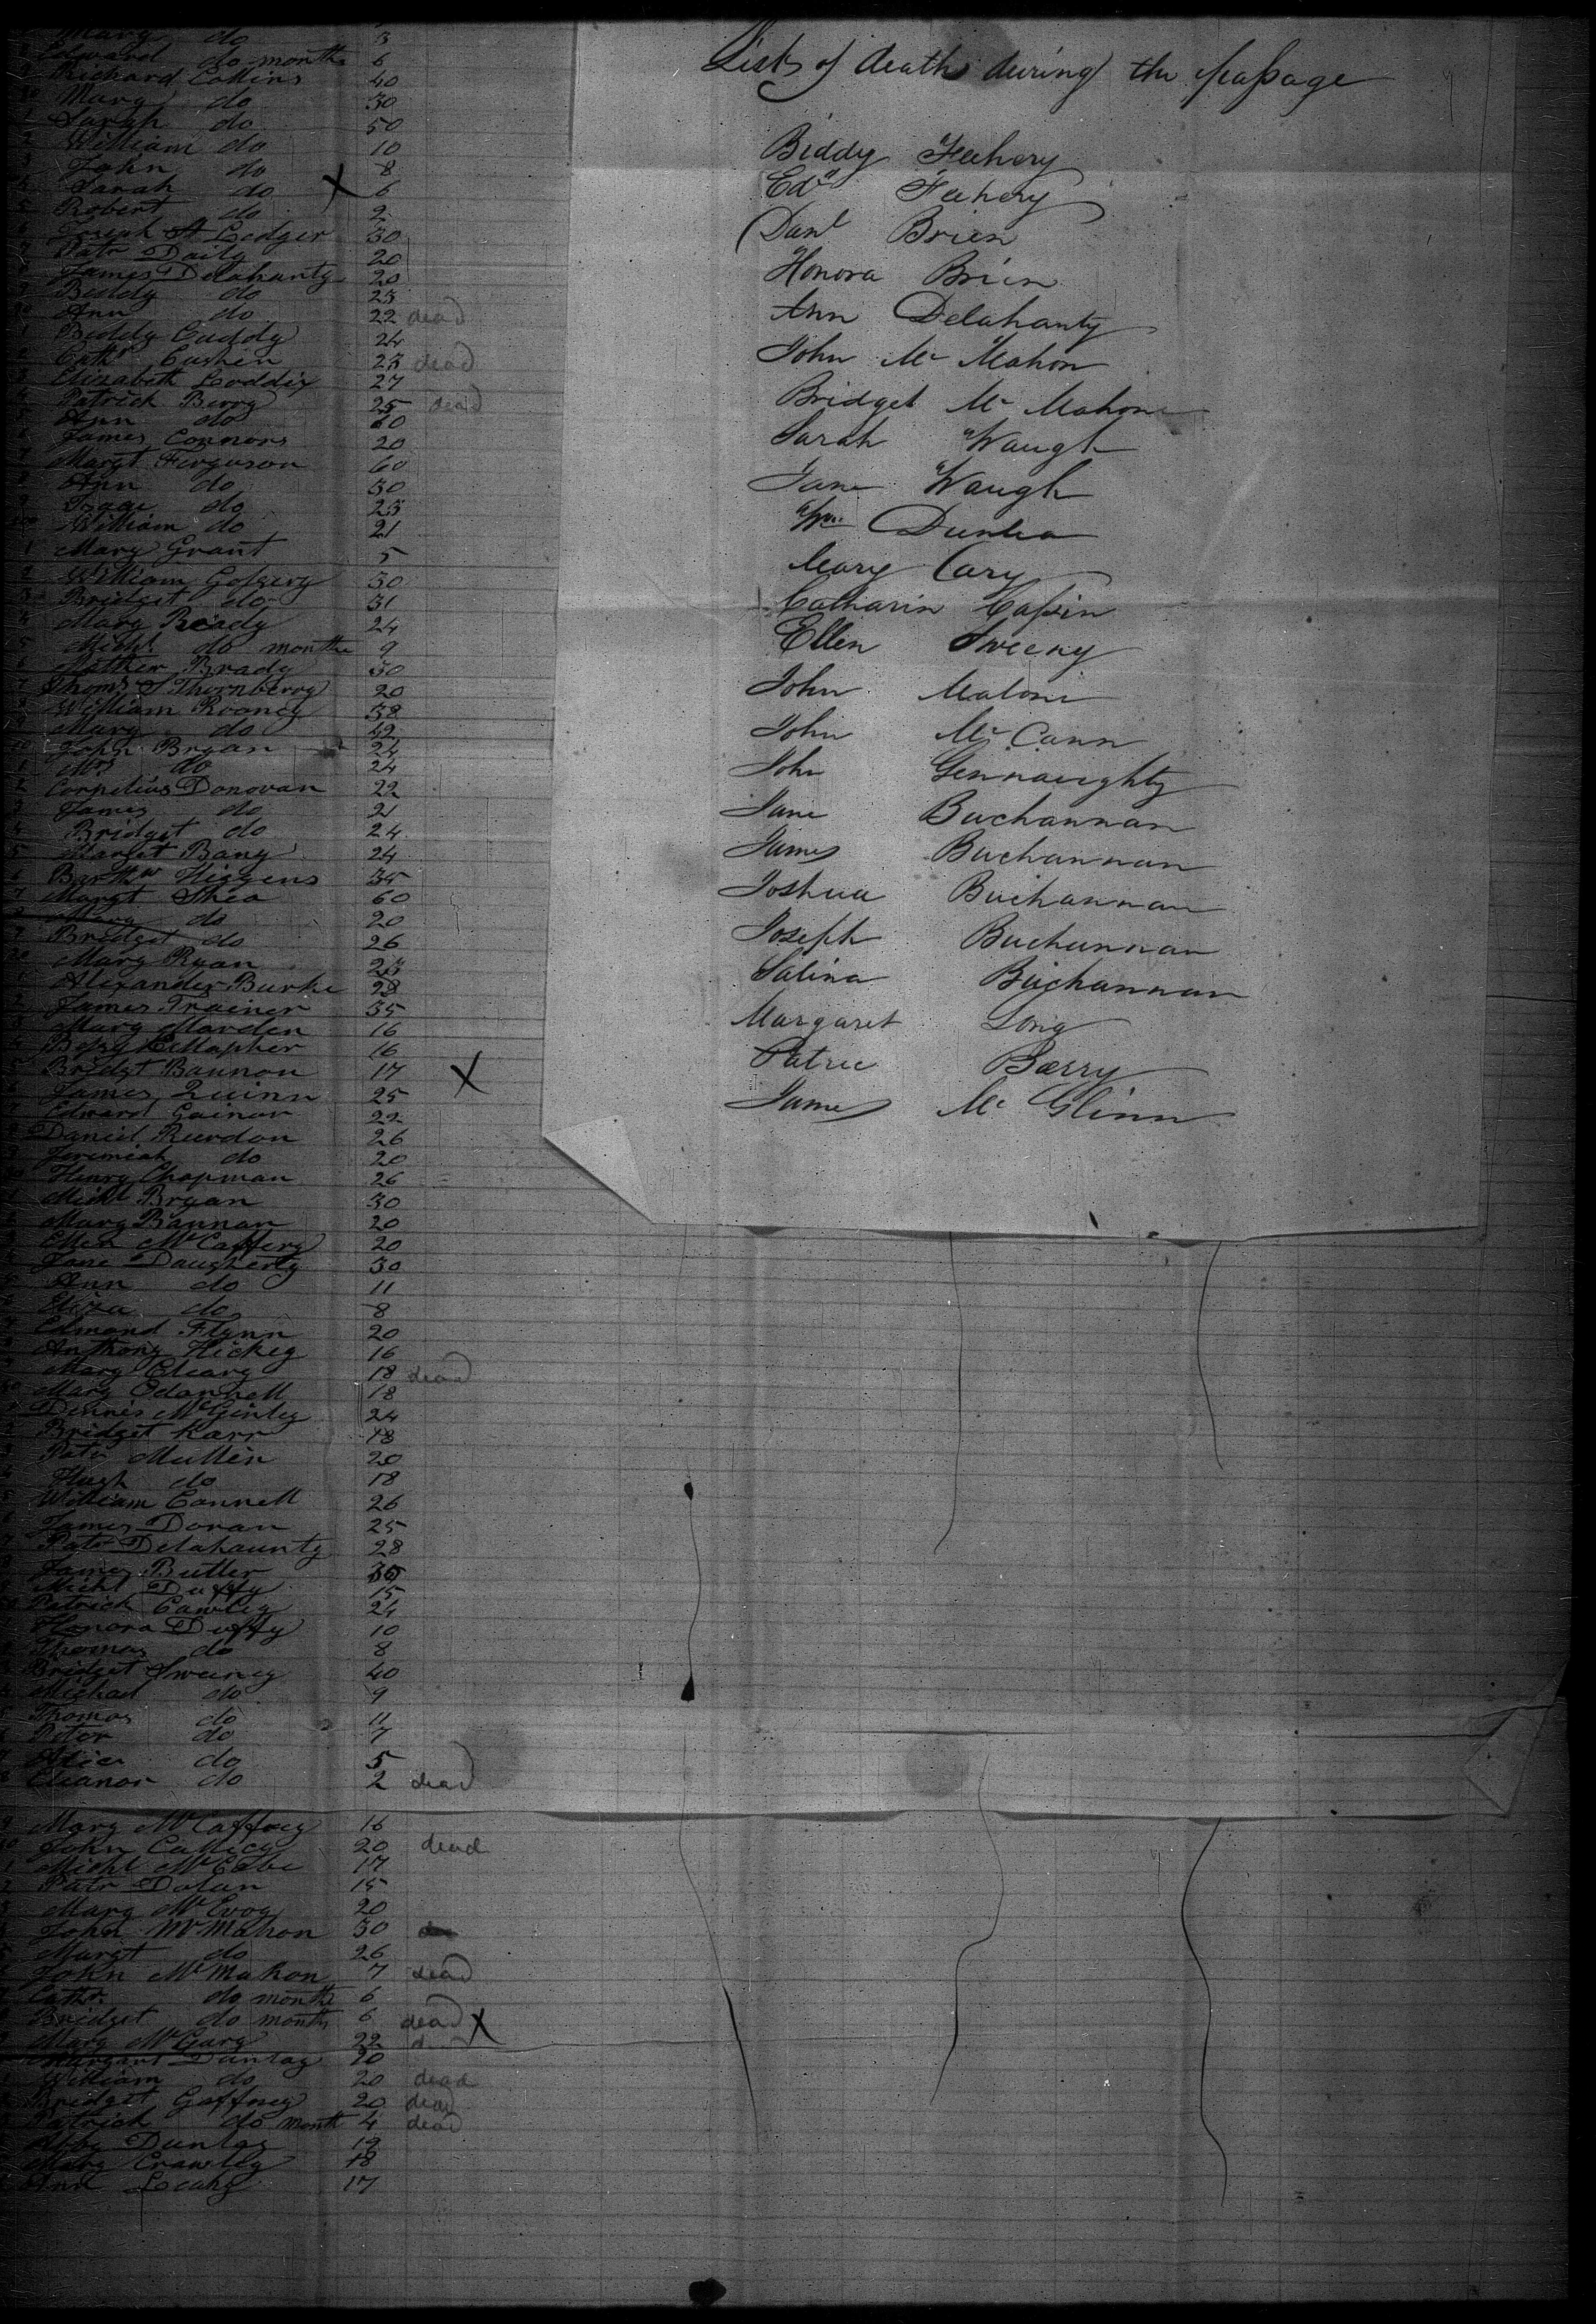 Mary do 3
Edward do months 6
Richard Collins 40
Mary do 30
Sarah do 50
William do 10
John do 8
Sarah do X 6
Robert do 2
Joseph St Ledger 30
Patr Daily 20
James Delahanty 20
Biddy do 23
Ann do 22 dead
Biddy Cuddy 24
Cathr Cushen 23 dead
Elizabeth Loddix 27
Patrick Berry 25 dead
Ann do 60
James Connors 20
Margt Ferguson 60
Ann do 30
do 23
William do 21
Mary Grant 5
William 30
Bridget do 31
Mary Ready 24
Michl do months 9
Brady 30
Thoms S Thornberry 20
William Rooney 38
Mary do 42
John Bryan 24
Mrs do 24
Cornelius Donovan 22
James do 21
Bridget do 24
Margt Bany 24
Barthw Higgens 35
Margt Shea 60
Mary do 20
Bridget do 26
Mary Ryan 23
Alexander Burke 28
James Trainer 35
Mary Marden 16
16
Bridgt Bannon 17 X
James Quinn 25
Edward Gainor 22
Daniel Reerdon 26
Jeremiah do 20
Henry Chapman 26
Michl Bryan 30
Mary Bannan 20
Ellen McCaffery 20
Jane Daugherty 30
Ann do 11
Eliza do 8
Edmond Flynn 20
Anthony Hickey 16
Mary Cleary 18 dead
Mary Odannell 18
Dennis McGinley 24
Bridget Karr 18
Patr Mullin 20
Hugh do 18
William Connell 26
James Doran 25
Patr Delahaunty 28
James Butler 30
Michl Duffy 15
Patrick Cawley 24
Honora Duffy 10
Thomas do 8
Bridget Sweeney 40
Michael do 9
Thomas do 11
Peter do 7
Alice do 5
Eleanor do 2 dead
Mary McCaffrey 16
John 20 dead
Michl McCabe 17
Patr Dolan 15
Mary McEvoy 20
John McMahon 30
Margt do 26
John McMahon 7 dead
Cathr do months 6
Bridget do months 6 dead X
Mary McGary 22
Margaret Dunlay 20
William do 20 dead
Bridget Gaffney 20 dead
Patrick do month 4 dead
Abby Dunlay 19
Mary Crawley 18
Ann Leahy 17
Lists of deaths during the passage
Biddy Feehery
Edwd Feehery
Danl Brien
Honora Brien
Ann Delahanty
John Mc Mahon
Bridget Mc Mahon
Sarah Waugh
Jane Waugh
Wm Dunlea
Mary Cary
Catharin Cassin
Ellen Sweeny
John Maloni
John McCann
John Gennaughty
Jane Buchannan
James Buchannan
Joshua Buchannan
Joseph Buchannan
Salina Buchannan
Margaret Long
Patric Barry
James Mc Glinn